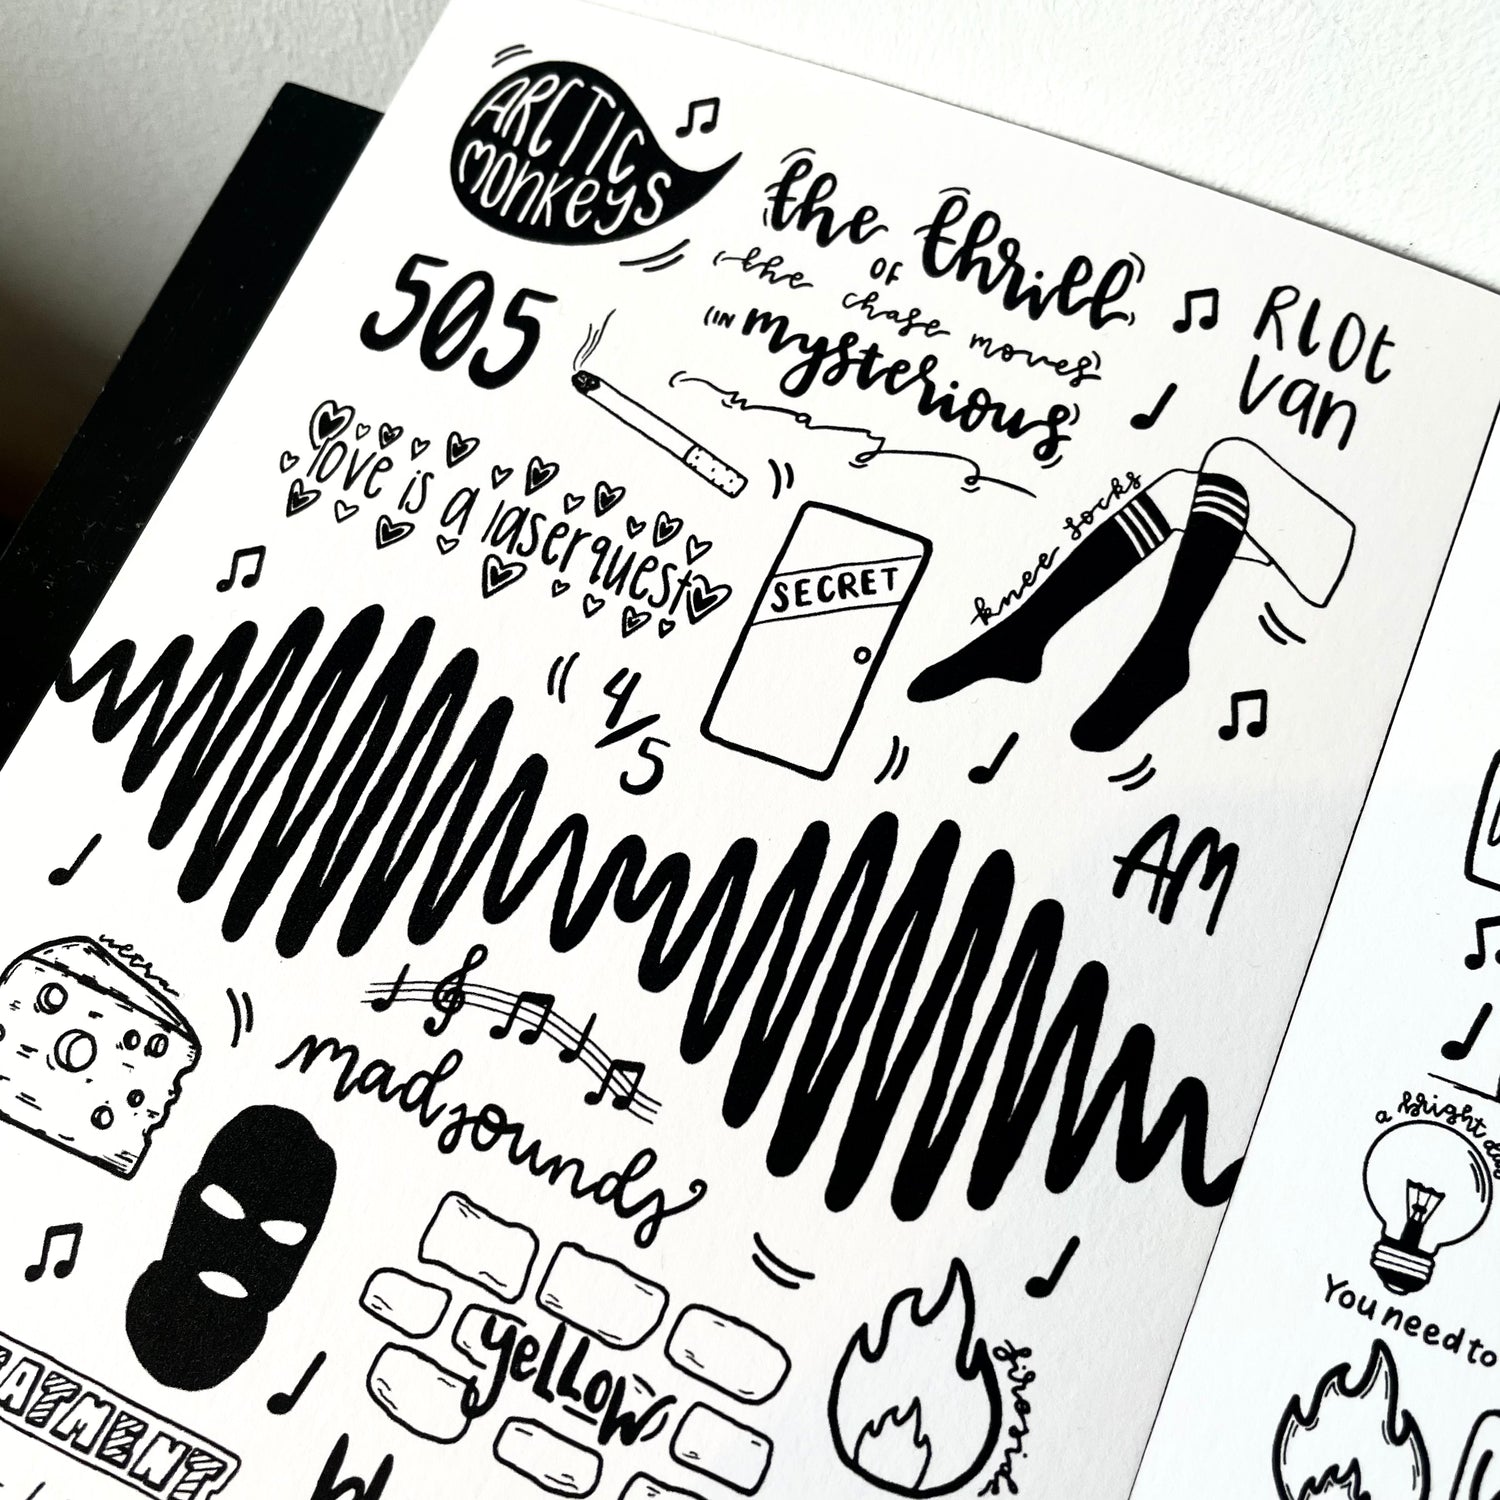 ARCTIC
monkeys
the thrill
OF
the chase moves
(IN mysterious
way
RIOt
Van
505
love is a laserquest
SECRET
knee socks
4/5
AM
mad sounds
yellow
fireside
EATMENT
a bright
You need to